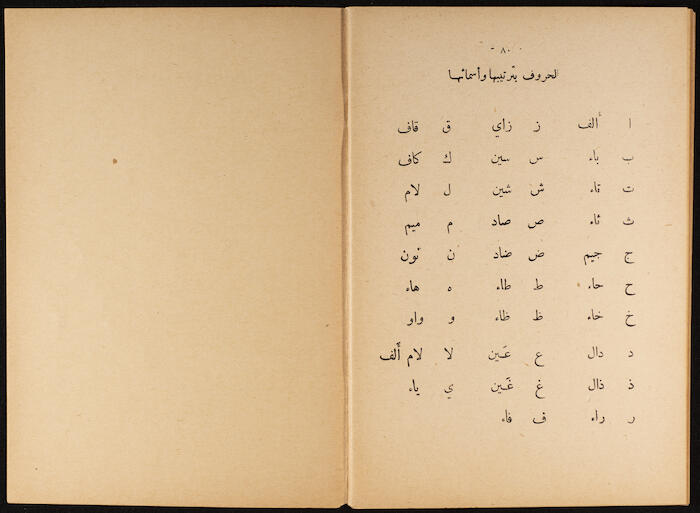 - ٨٠ -
الحروف بترتيبها وأسمائها
ا ألف ز زاي ق قاف
ب باء س سين ك كاف
ت تاء ش شين ل لام
ث ثاء ص صاد م ميم
ج جيم ض ضاد ن نون
ح حاء ط طاء ه هاء
خ خاء ظ ظاء و واو
د دال ع عَين لا لام أَلف
ذ ذال غ غَين ي ياء
ر راء ف فاء